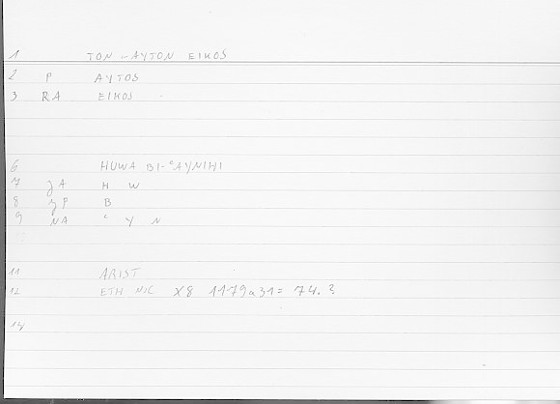 1 TON -AYTON EIKOS
2 P AYTOS
3 RA EIKOS
6 HUWA BI-ʿAYNIHI
7 JA H W
8 JP B
9 NA ʿ Y N
11 ARIST
12 ETH NIC X8 1179a31 = 74.3
14